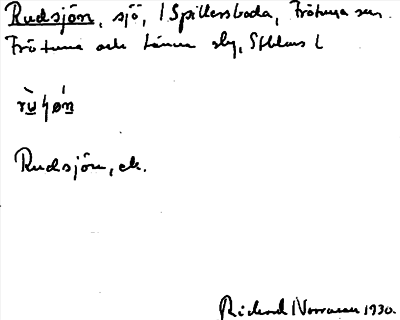 Rudsjön, sjö, i Spillersboda, Frötuna sn.
Frötuna och Länna skg, Sthlms l
Rudsjön, ek.
Richard Norrman 1930.